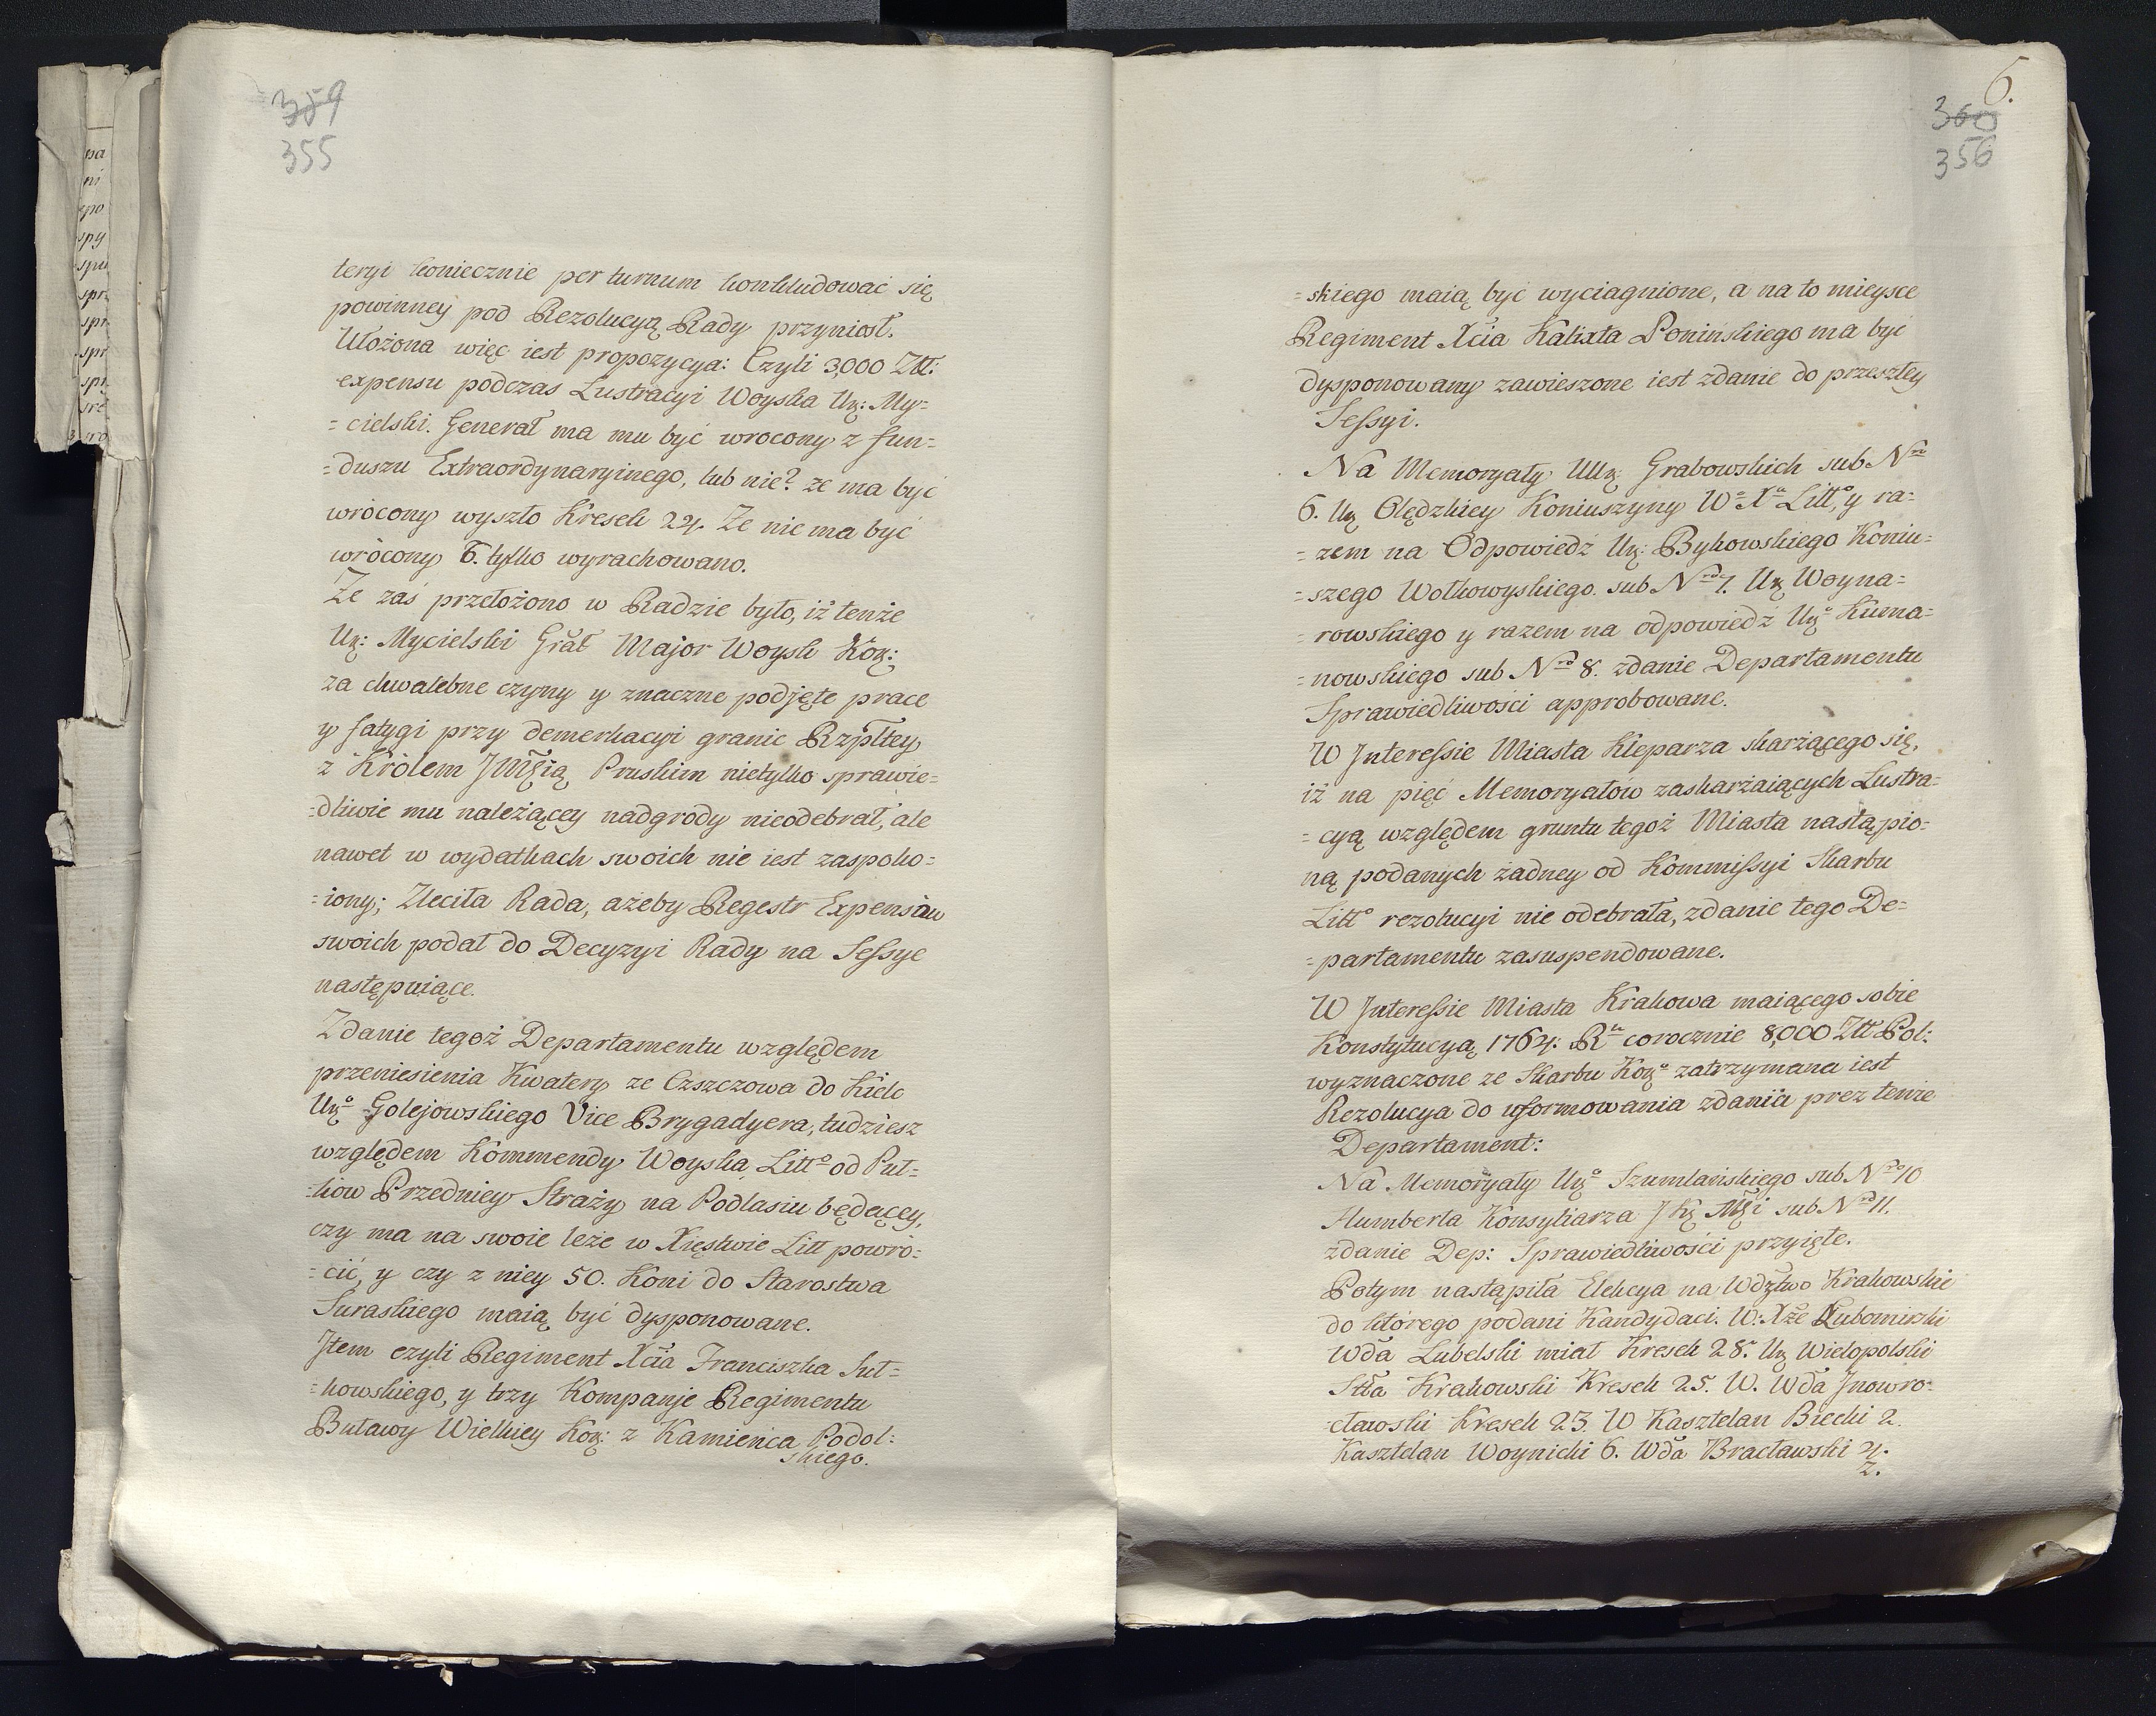 359
355
teryi koniecznie per turnum konkludować się
powinney pod Rezolucyą Rady przyniosł.
Ułożona więc iest propozycya: Czyli 3,000 Złł:
expensu podczas Lustracyi Woyska Ur: My=
=cielski. Generał ma mu być wrocony z fun=
=duszu Extraordynaryinego, lub nie? że ma być
wrócony wyszło Kresek 24. Że nie ma być
wrócony 6. tylko wyrachowano.
Że zaś przełożono w Radzie było, iż tenże
Ur: Mycielski Grał Major Woysk Kor:
za chwalebne czyny y znaczne podjęte prace
y fatygi przy demerkacyi granic Rzpltey
z Królem JMścią Pruskim nietylko sprawie=
=dliwie mu należącey nadgrody nieodebrał, ale
nawet w wydatkach swoich nie iest zaspoko=
=iony; Zleciła Rada, ażeby Regestr Expensów
swoich podał do Decyzyi Rady na Sessye
następuiące.
Zdanie tegoż Departamentu względem
przeniesienia Kwatery ze Czszczowa do Kielc
Urº Golejowskiego Vice Brygadyera, tudziesz
względem Kommendy Woyska Littº od Puł=
=ków Przedniey Straży na Podlasiu będącey,
czy ma na swoie leże w Xięstwie Litt powró=
=cić, y czy z niey 50. Koni do Starostwa
Suraskiego maią być dysponowane.
Jtem czyli Regiment Xcia Franciszka Suł=
=kowskiego, y trzy Kompanje Regimentu
Buławy Wielkiey Kor: z Kamieńca Podol=
skiego.
6.
360
356
=skiego maią być wyciągnione, a na to mieysce
Regiment Xcia Kalixta Ponińskiego ma być
dysponowany zawieszone iest zdanie do przeszłey
Sessyi.
Na Memoryały UUr: Grabowskich sub Nro
6. Ur Olędzkiey Koniuszyny Wº Xª Littº, y ra=
=zem na Odpowiedź Ur: Bykowskiego Koniu=
=szego Wołkowyskiego. sub Nro 7. Ur Woyna=
=rowskiego y razem na odpowiedź Urº Kuma=
=nowskiego sub Nro 8. zdanie Departamentu
Sprawiedliwości approbowane.
W Jnteressie Miasta Kleparza skarżącego się,
iż na pięć Memoryałów zaskarżaiących Lustra=
=cyą względem gruntu tegoż Miasta nastąpio=
ną podanych żadney od Kommissyi Skarbu
Littº rezolucyi nie odebrała, zdanie tego De=
=partamentu zasuspendowane.
W Jnteressie Miasta Krakowa maiącego sobie
Konstytucyą 1764. Rª corocznie 8,000 Złł Pol:
wyznaczone ze Skarbu Korº zatrzymana iest
Rezolucya do uformowania zdania prez tenże
Departament:
Na Memoryały Urº Szumlańskiego sub Nro 10
Humberta Konsyliarza JKr Mści sub Nro 11.
zdanie Dep: Sprawiedliwości przyięte.
Potym nastąpiła Elekcya na Wdztwo Krakowskie
do którego podani Kandydaci. W. Xże Lubomirski
Wda Lubelski miał Kresek 28. Ur Wielopolski
Stta Krakowski Kresek 25. W. Wda Jnowro=
=cławski Kresek 23. W Kasztelan Biecki 2.
Kasztelan Woynicki 6. Wda Bracławski 4.
z.